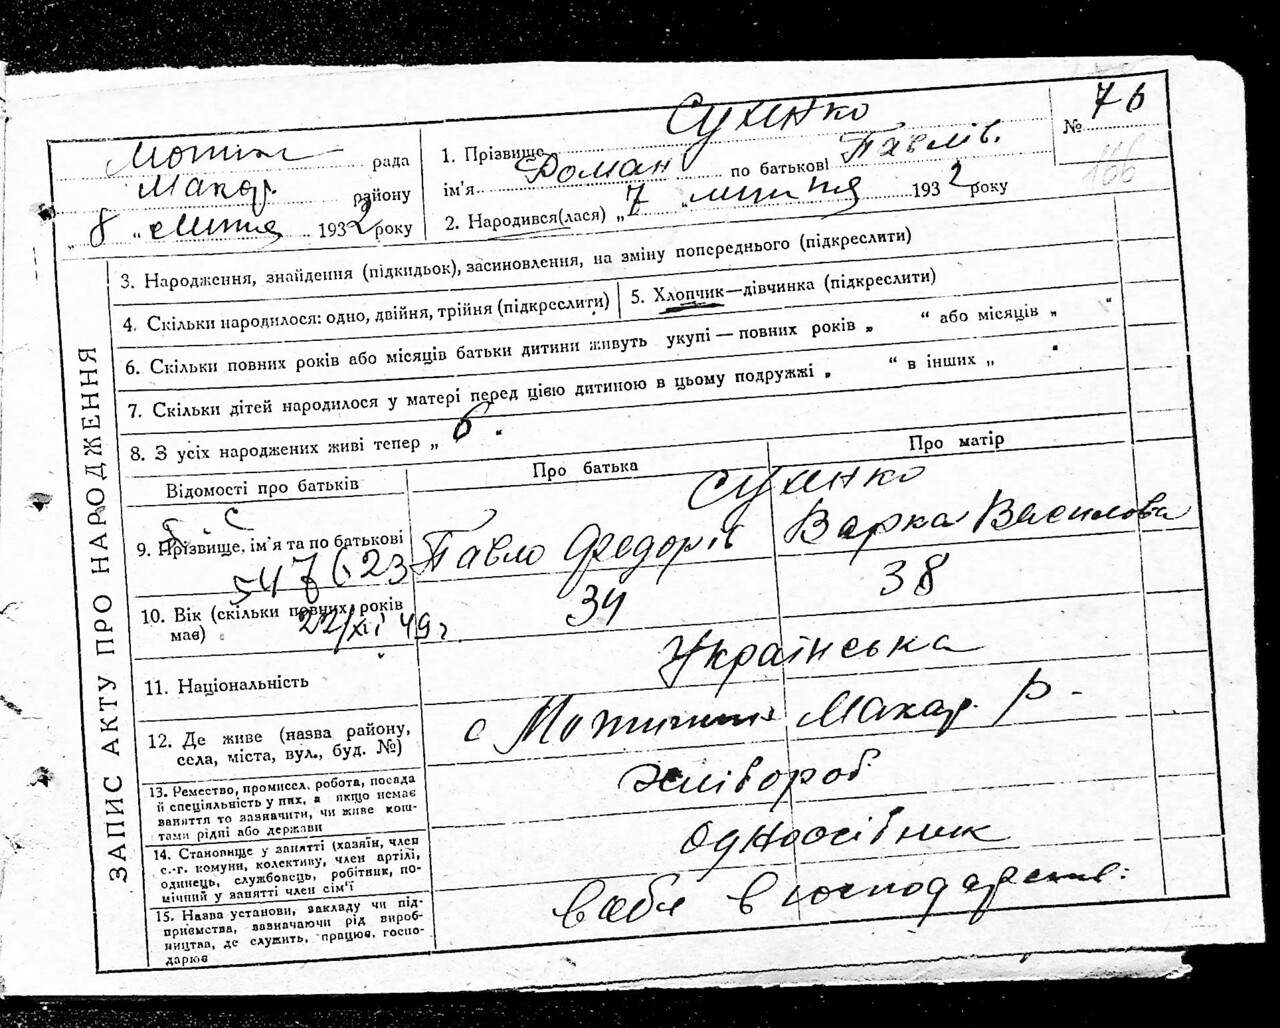 № 76
166
Мотиж рада
Макар. району
„ 8 „ липня 1932 року
1. Прізвище Сухенко
ім'я Роман по батькові Павлів.
2. Народився(лася) „ 7 „ липня 1932 року
ЗАПИС АКТУ ПРО НАРОДЖЕННЯ
3. Народження, знайдення (підкидьок), засиновлення, на зміну попереднього (підкреслити)
4. Скільки народилося: одно, двійня, трійня (підкреслити)
5. Хлопчик—дівчинка (підкреслити)
6. Скільки повних років або місяців батьки дитини живуть укупі — повних років „ “ або місяців „ “
7. Скільки дітей народилося у матері перед цією дитиною в цьому подружжі „ “ в інших „
8. З усіх народжених живі тепер „ 6 “.
Відомості про батьків
Про батька
Про матір
Сухенко
9. Прізвище, ім'я та по батькові
Павло Федорів
Варка Василова
547623
10. Вік (скільки повних років
має)
34
38
22/XI 49 г.
11. Національність
Українська
12. Де живе (назва району,
села, міста, вул., буд. №)
с Мотижин Макар. р-
13. Ремество, промисел, робота, посада
й спеціяльність у них, а якщо немає
заняття то зазначити, чи живе кош-
тами рідні або держави
хлібороб
14. Становище у занятті (хазяїн, член
с.-г. комуни, колективу, член артілі,
одинець, службовець, робітник, по-
мічний у занятті член сім'ї
одноосібник
15. Назва установи, закладу чи під-
приємства, зазначаючи рід вироб-
ництва, де служить, працює, госпо-
дарює
в себе в господарстві.